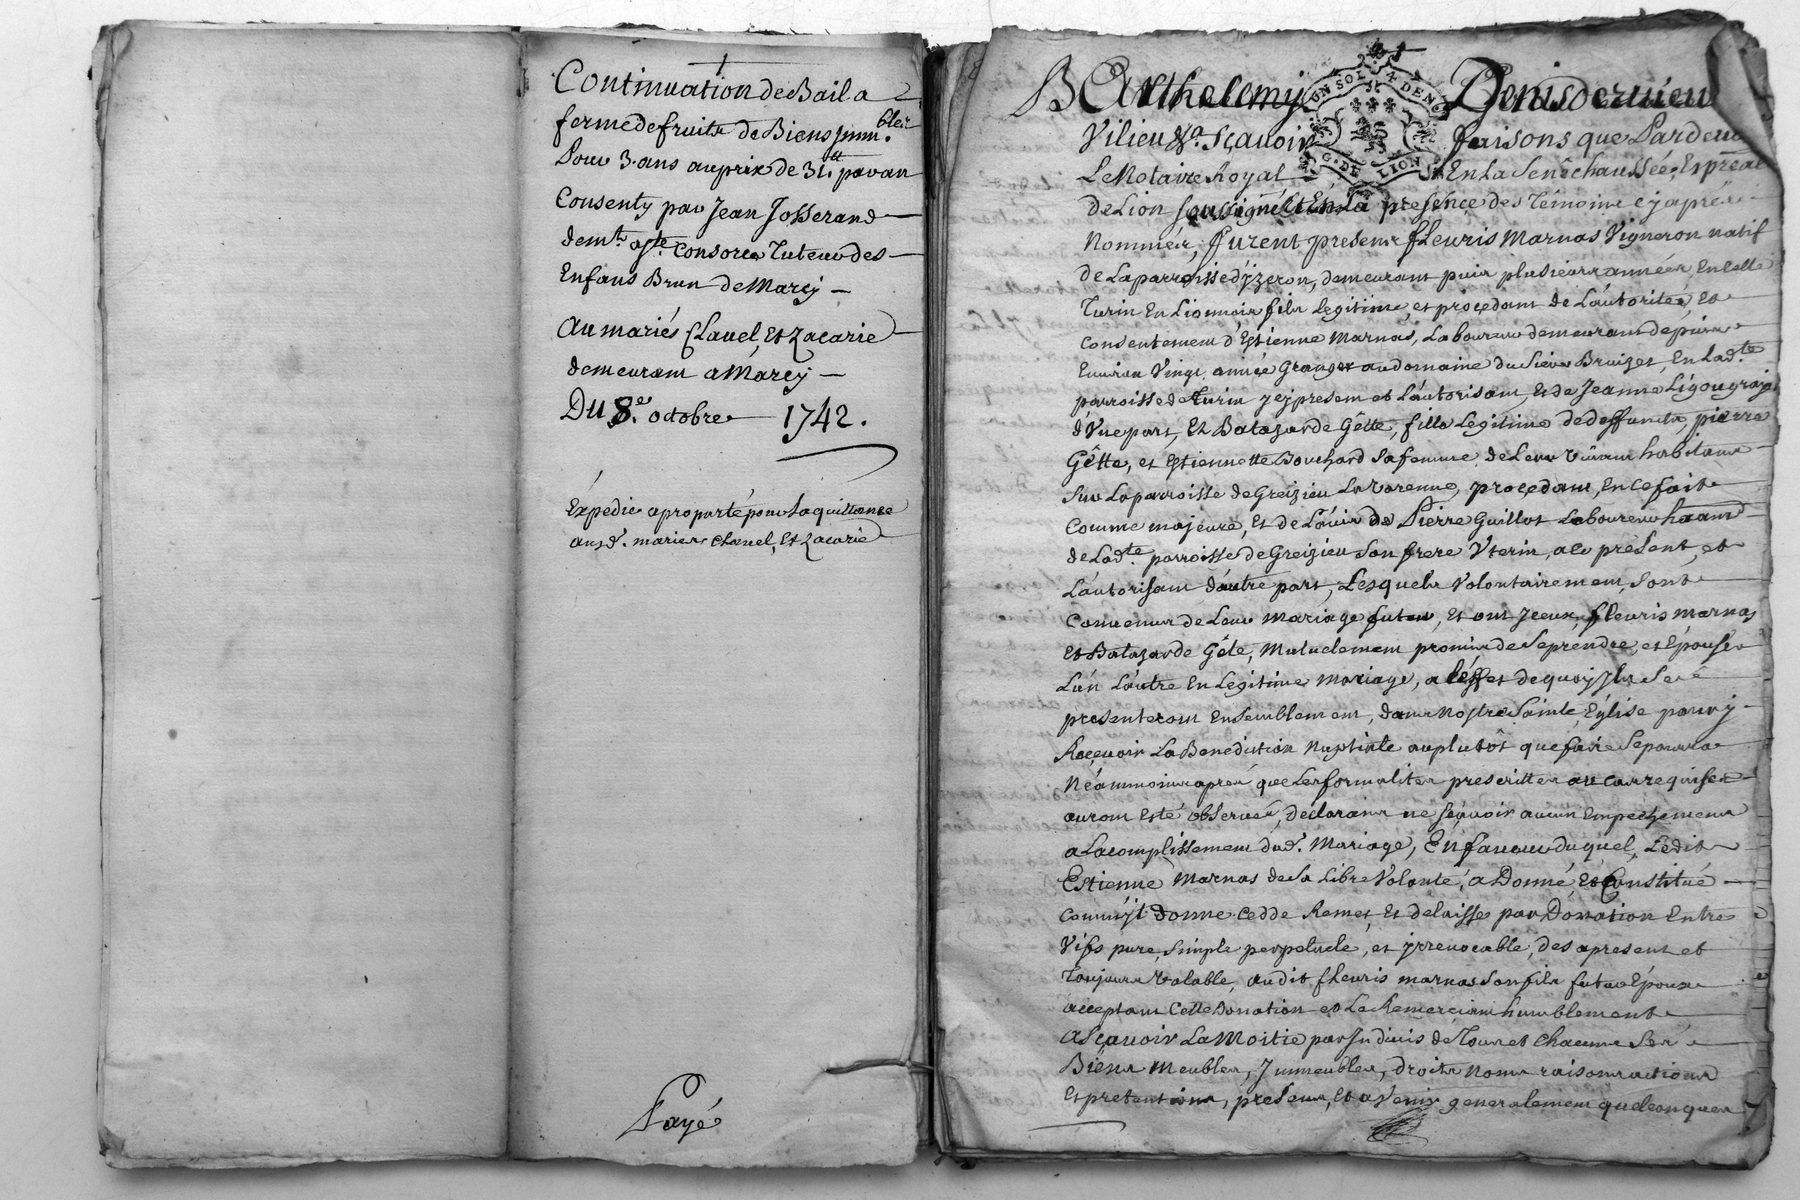 Continuation de Bail a
ferme de fruits de Biens Jmm.bles
Pour 3. ans au prix de 31.tt par an
Consenty par Jean Josserand
dem.t consorce Tuteur des
Enfans Brun de Marcy
Au mariés Clauel, Et Zacarie
demeurant a Marcy
Du 8.e octobre 1742.
Expedié aproparté pour la quittance
ausd. mariés Clauel, Et Zacarie
Payé
UN SOL 4. DEN
G. DE LION
BArthelemy Denis de ruieu
Vilieu &a. Sçauoir faisons que Pardeua
Le Notaire Royal En La Sénéchaussée, Et preãl
de Lion soussigné Et En La présence des Témoins cy aprés
Nommés, furent presens fleuris Marnas Vigneron natif
de La parroisse d'yzeron, demeurant puis plusieurs années, En celle
Turin En Lionnois fils Legitime, et proçedant de L'autorité, Et
Consentement d'Estienne Marnas, Laboureur demeurant dépuis
Enuiron Vingt années Granger au domaine du Sieur Bruizet, En Lad.te
parroisse de Turin y çy present et L'autorisant, Et de Jeanne
d'Vne part, Et Batazarde Gêtte, fille Legitime de deffuncts, pierre
Gêtte, et Estiennette Bouchard sa femme, de Leur viuant habitans
Sur La parroisse de Greizieu La Varenne, proçedant, En ce fait
Comme majeure, Et de L'auis de Pierre Guillot Laboureur
de Lad.te parroisse de Greizieu Son frere Vterin, a ce présent, et
L'autorisant d'autre part, Lesquels Volontairement, Sont
Conuenus de Leur Mariage futur, Et ont yceux, fleuris Marnas
Et Batazarde Gête, Mutuelement promis de Se prendre, et Épouser
L'un L'autre En Legitime Mariage, a l'éffet de quoy Jls Se
presenteront Ensemblement, dans Nostre Sainte Eglise pour y
Reçeuoir La Benediction Nuptiale au plutôt que faire Se pourra
Néanmoins aprés que Les formalites prescrittes au cas requises
auront Esté obseruées, declarans ne Sçauoir aucun Empeçhement
a L'acomplissement dud. Mariage, En faueur duquel, Ledit
Estienne Marnas de Sa Libre Volonté, a Donné, Et Constitué
donne cedde Remet Et delaisse par Donation Entre
Vifs pure, Simple perpetuele, et jrreuocable, des apresent et
Toujours Valable, audit fleuris Marnas Son fils futur Époux
acceptant Cette Donation et Le Remerciant humblement
ASçauoir La Moitié par Indiuis de Tous et Chacuns Ses
Biens Meubles, Jmmeubles, droits Noms raisons actions
Et pretentions, presens, Et a Venir generalement quelconques